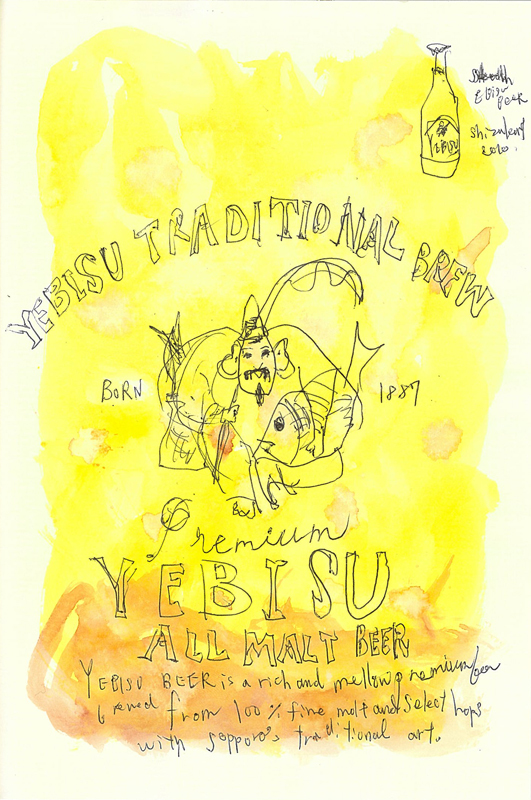 Ebisu
Beer
2020.
YEBISU
YEBISU TRADITIONAL BREW
BORN
1887
Premium
YEBISU
ALL MALT BEER
YEBISU BEER is a rich and mellow premium beer
brewed from 100% fine malt and select hops
with Sapporo's traditional art.